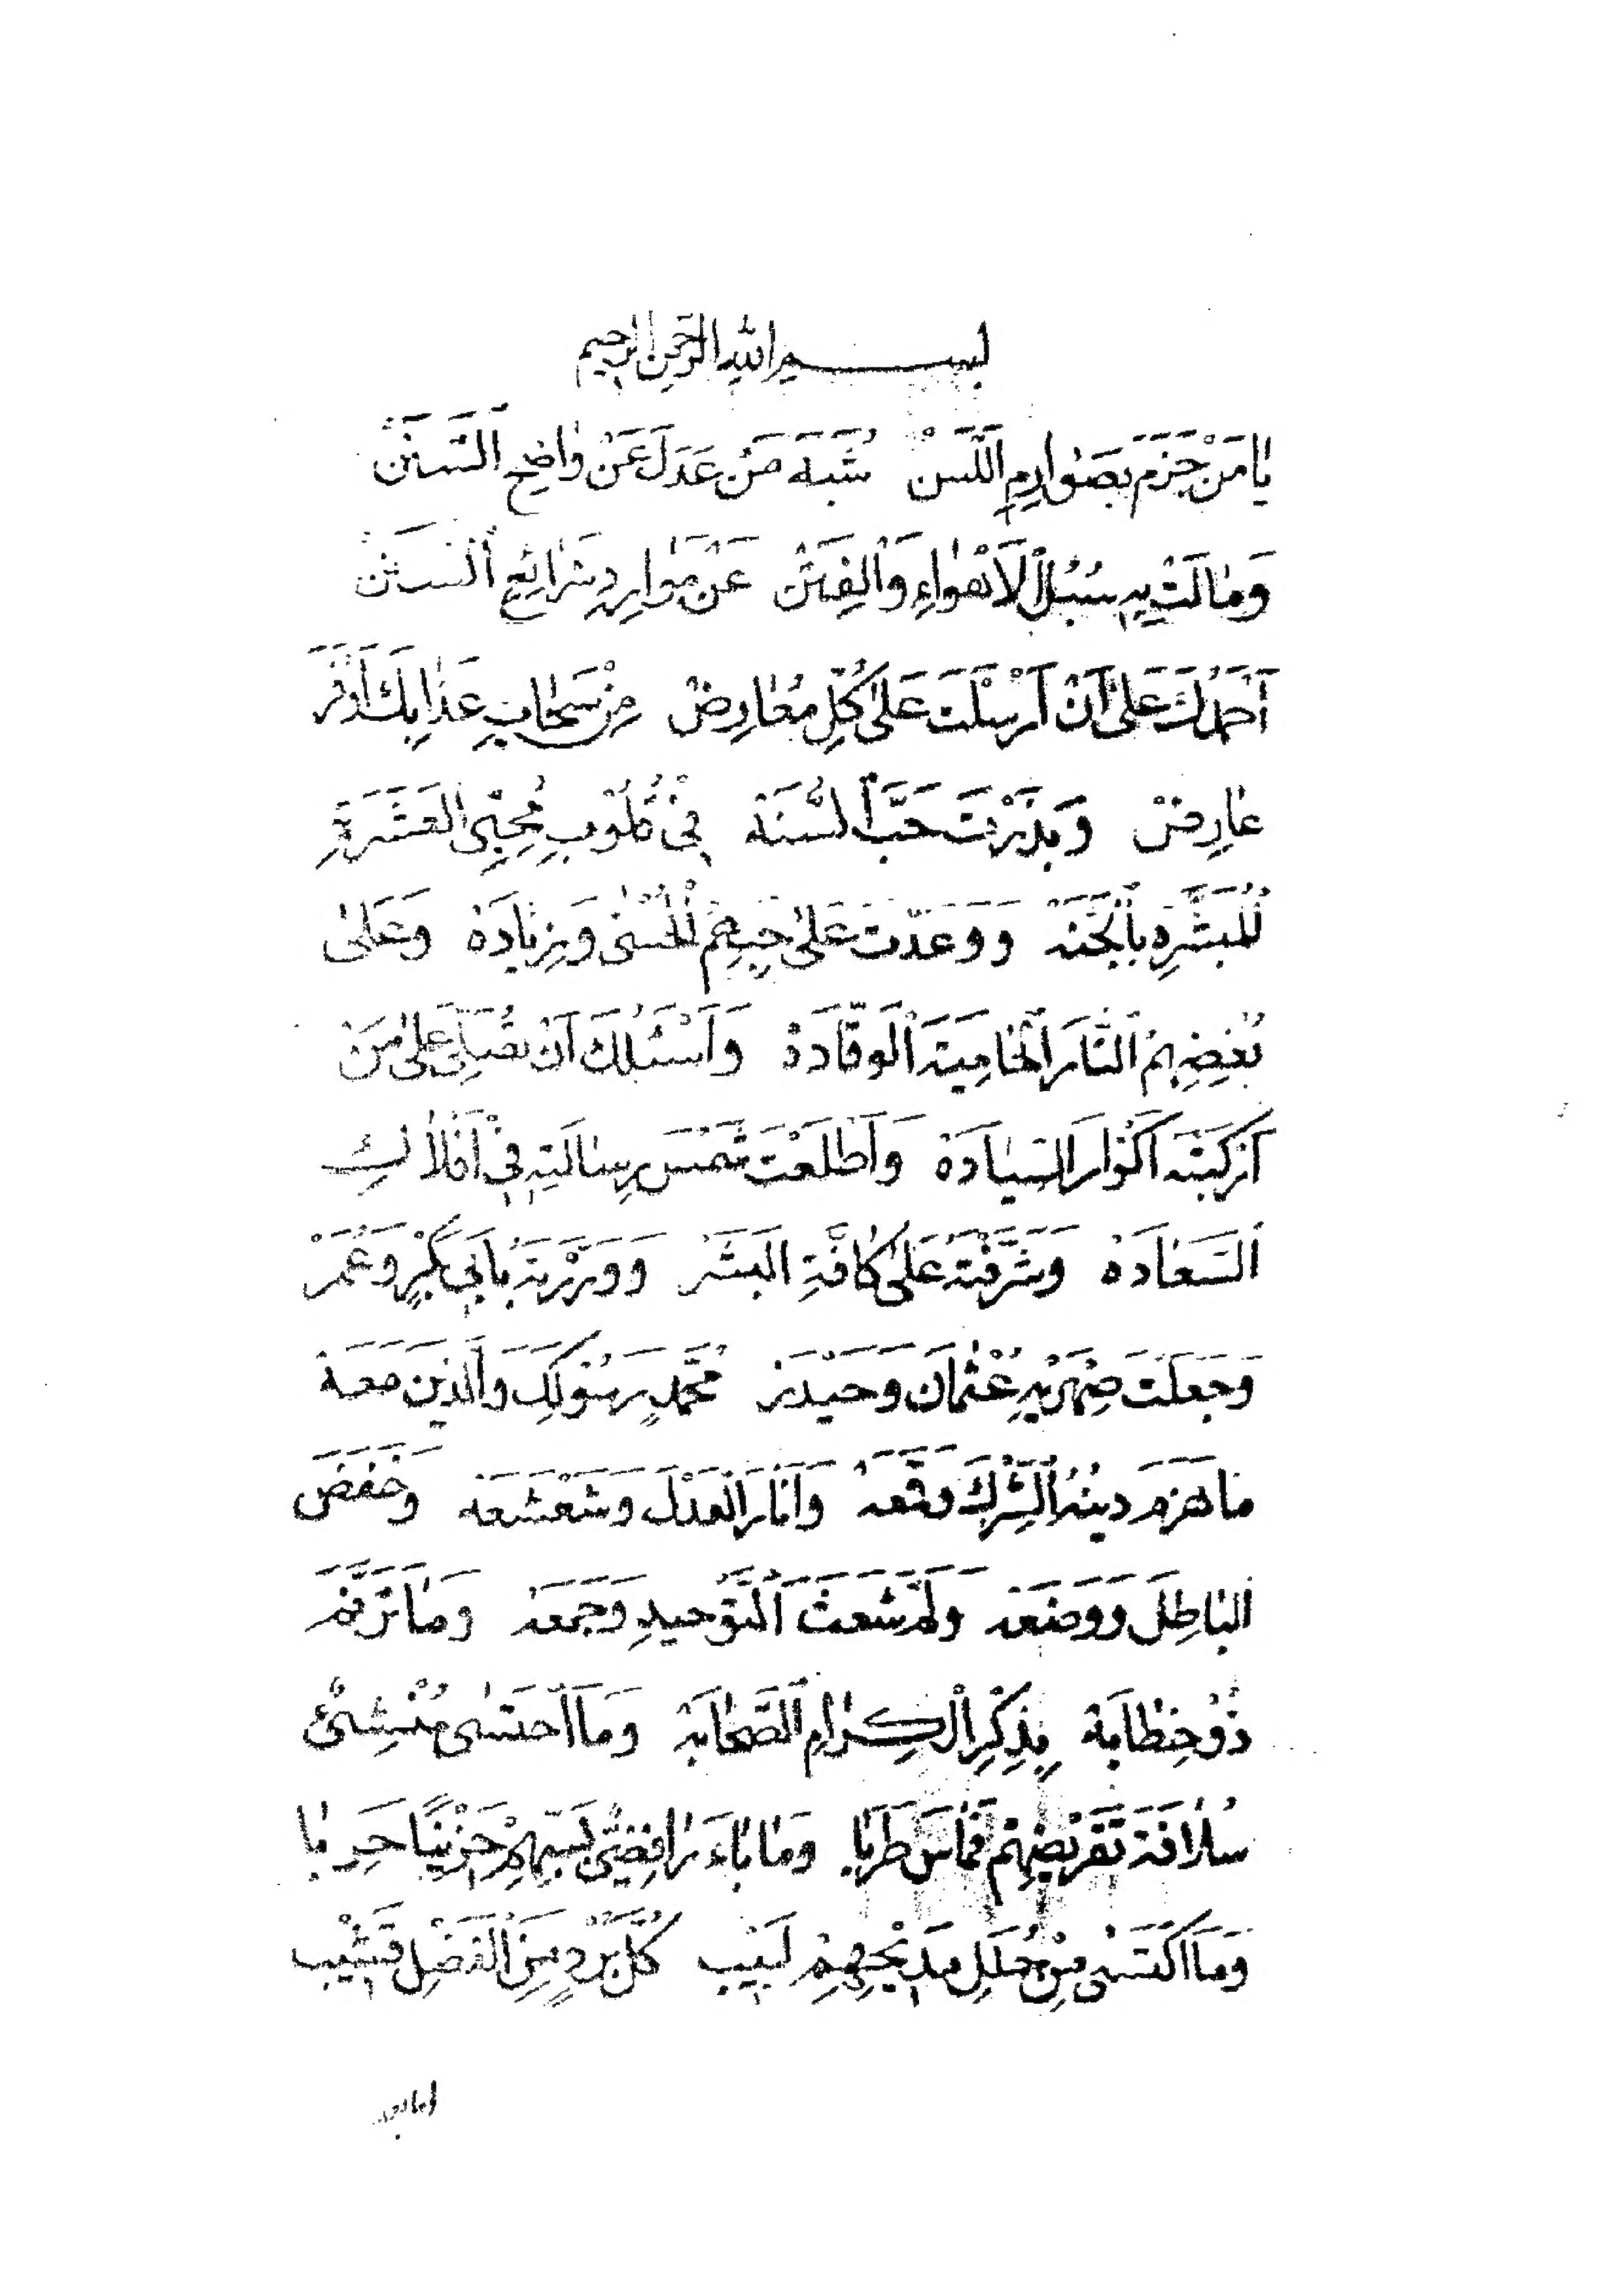 بسم الله الرحمن الرحيم
يٰا مَنْ جَزَمَ بِصَوٰارِمِ اللَّسَنْ شُبَهَ مَنْ عَدَلَ عَنْ وٰاضِحِ السَّنَنْ
وَمٰالَتْ بِهِ سُبُلُ الْاَهْوٰاءِ وَالْفِتَنْ عَنْ مَوٰارِدِ شَرٰائِعِ السُّنَنْ
اَحْمَدُكَ عَلىٰ اَنْ اَرْسَلْتَ عَلىٰ كُلِّ مُعٰارِضْ مِنْ سَحٰابِ عَذٰابِكَ اَوْفَرَ
عٰارِضْ وَبَذَرْتَ حَبَّ السُّنَّة فِى قُلُوْبِ مُحِبِّى الْعَشَرَةِ
الْمُبَشَّرَةِ بِالْجَنَّة وَوَعَدْتَ عَلىٰ حُبِّهِمُ الْحُسْنىٰ وَزِيٰادَة وَعَلىٰ
بُغْضِهِمُ النَّارَ الْحٰامِيَةَ الْوَقَّادَة وَاَسْئَلُكَ اَنْ تُصَلِّىَ عَلىٰ مَنْ
اَرْكَبْتَهُ اَكْوٰارَ السِّيٰادَة وَاَطْلَعْتَ شَمْسَ رِسٰالَتِهِ فِى اَفْلٰاكِ
السَّعٰادَة وَشَرَّفْتَهُ عَلىٰ كٰافَّةِ الْبَشَرْ وَوَزَّرْتَهُ بِاَبِى بَكْرٍ وَعُمَرْ
وَجَعَلْتَ صِهْرَيْهِ عُثْمٰانَ وَحَيْدَرْ مُحَمَّدٍ رَسُوْلِكَ وَالَّذِيْنَ مَعَهْ
مَا هَزَمَ دِينُهُ الشِّرْكَ وَقَمَعَهْ وَاَنَارَ الْعَدْلَ وَشَعْشَعَهْ وَخَفَضَ
الْبٰاطِلَ وَوَضَعَهْ وَلَمَّ شَعَثَ التَّوْحِيدِ وَجَمَعَهْ وَمٰا تَرَنَّمَ
ذُوْ خِطٰابَة بِذِكْرِ الْكِرٰامِ الصَّحٰابَة وَمَا احْتَسىٰ مُنْشِئٌ
سُلٰافَةَ تَقْرِيْضِهِمْ فَمٰاسَ طَرَبٰا وَمٰا بٰاءَ رٰافِضِىٌّ بِسَبِّهِمْ حَزِيْنًا حَرِبٰا
وَمَا اكْتَسىٰ مِنْ حُلَلِ مَدِيْحِهِمْ لَبِيْب كُلَّ بُرْدٍ مِنَ الْفَضْلِ قَشِيْب
اما بعد